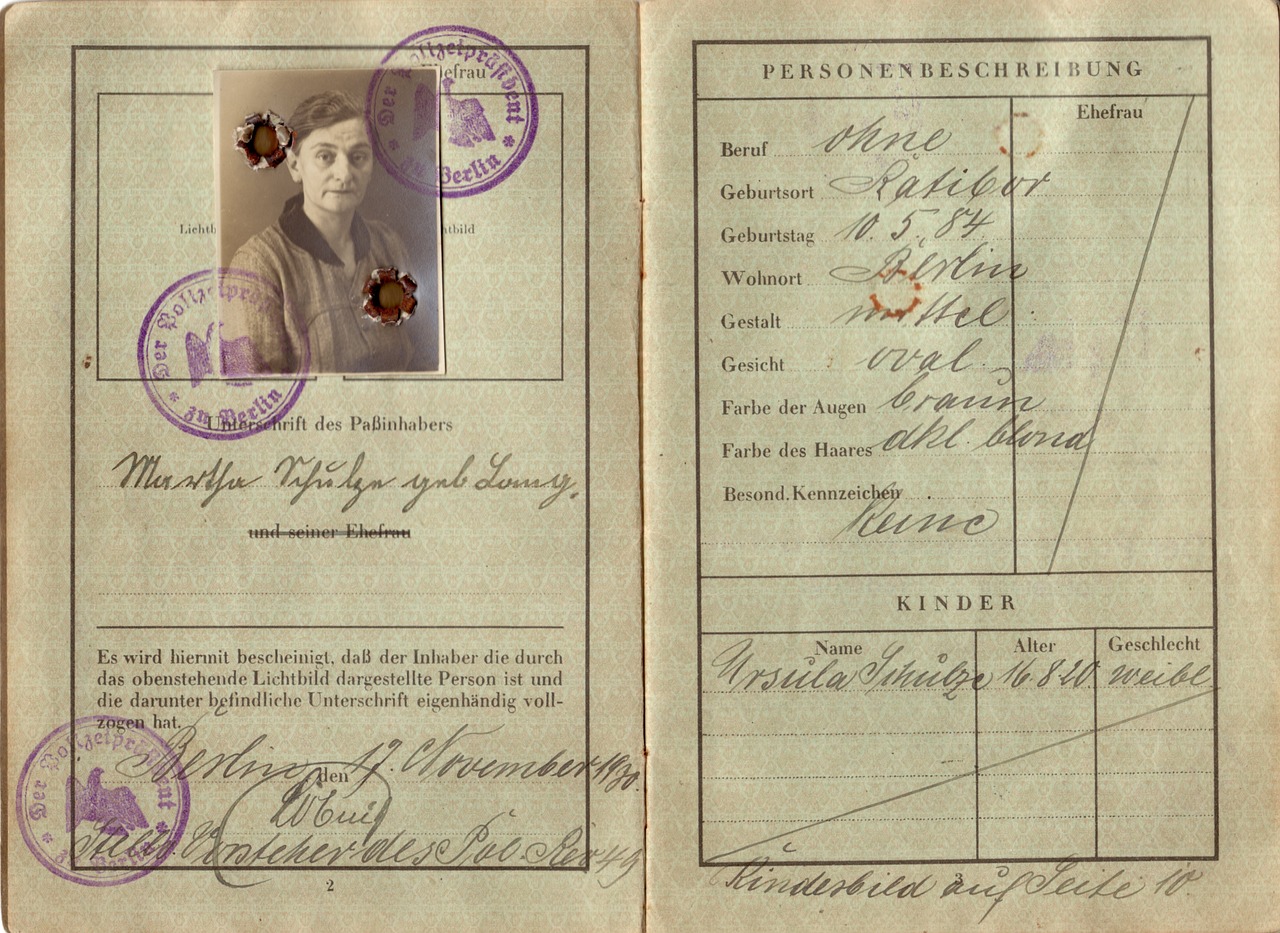 Ehefrau
Lichtb
htbild
Der Polizeipräsident
* zu Berlin *
Der Polizeipräsident
* zu Berlin *
Unterschrift des Paßinhabers
Martha Schulze geb Lang.
und seiner Ehefrau
Es wird hiermit bescheinigt, daß der Inhaber die durch
das obenstehende Lichtbild dargestellte Person ist und
die darunter befindliche Unterschrift eigenhändig voll-
zogen hat.
Berlin, den 17. November 1930.
Stellv. Vorsteher des Pol. Rev 49
Der Polizeipräsident
* zu Berlin *
2
PERSONENBESCHREIBUNG
Ehefrau
Beruf ohne
Geburtsort Ratibor
Geburtstag 10. 5. 84
Wohnort Berlin
Gestalt mittel
Gesicht oval
Farbe der Augen braun
Farbe des Haares dkl. blond
Besond. Kennzeichen
Keine
KINDER
Name Alter Geschlecht
Ursula Schulze 16.8.20. weibl.
Kindesbild auf Seite 10.
3